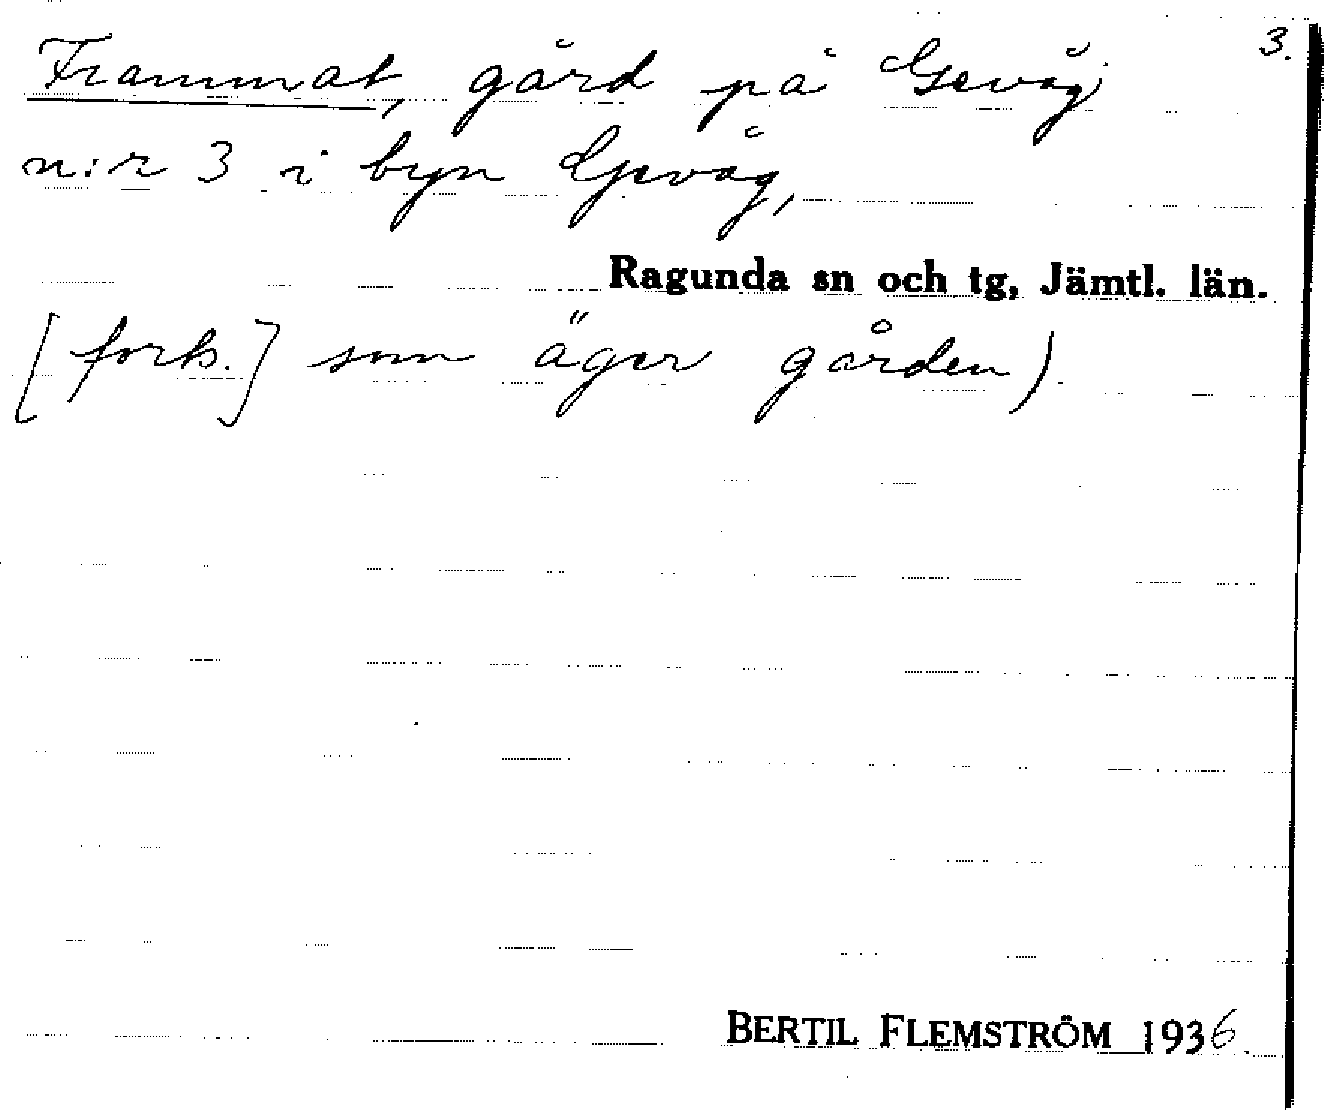 3.
Frammat, gård på Gevåg
n:r 3 i byn Gevåg,
Ragunda sn och tg, Jämtl. län.
[fork.] som äger gården)
BERTIL FLEMSTRÖM 1936.